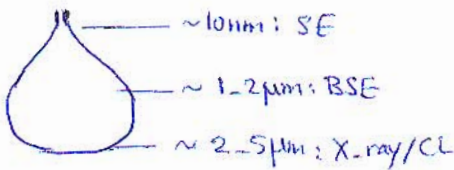 ~10nm: SE
~ 1-2µm: BSE
~ 2-5µm: X-ray/CL